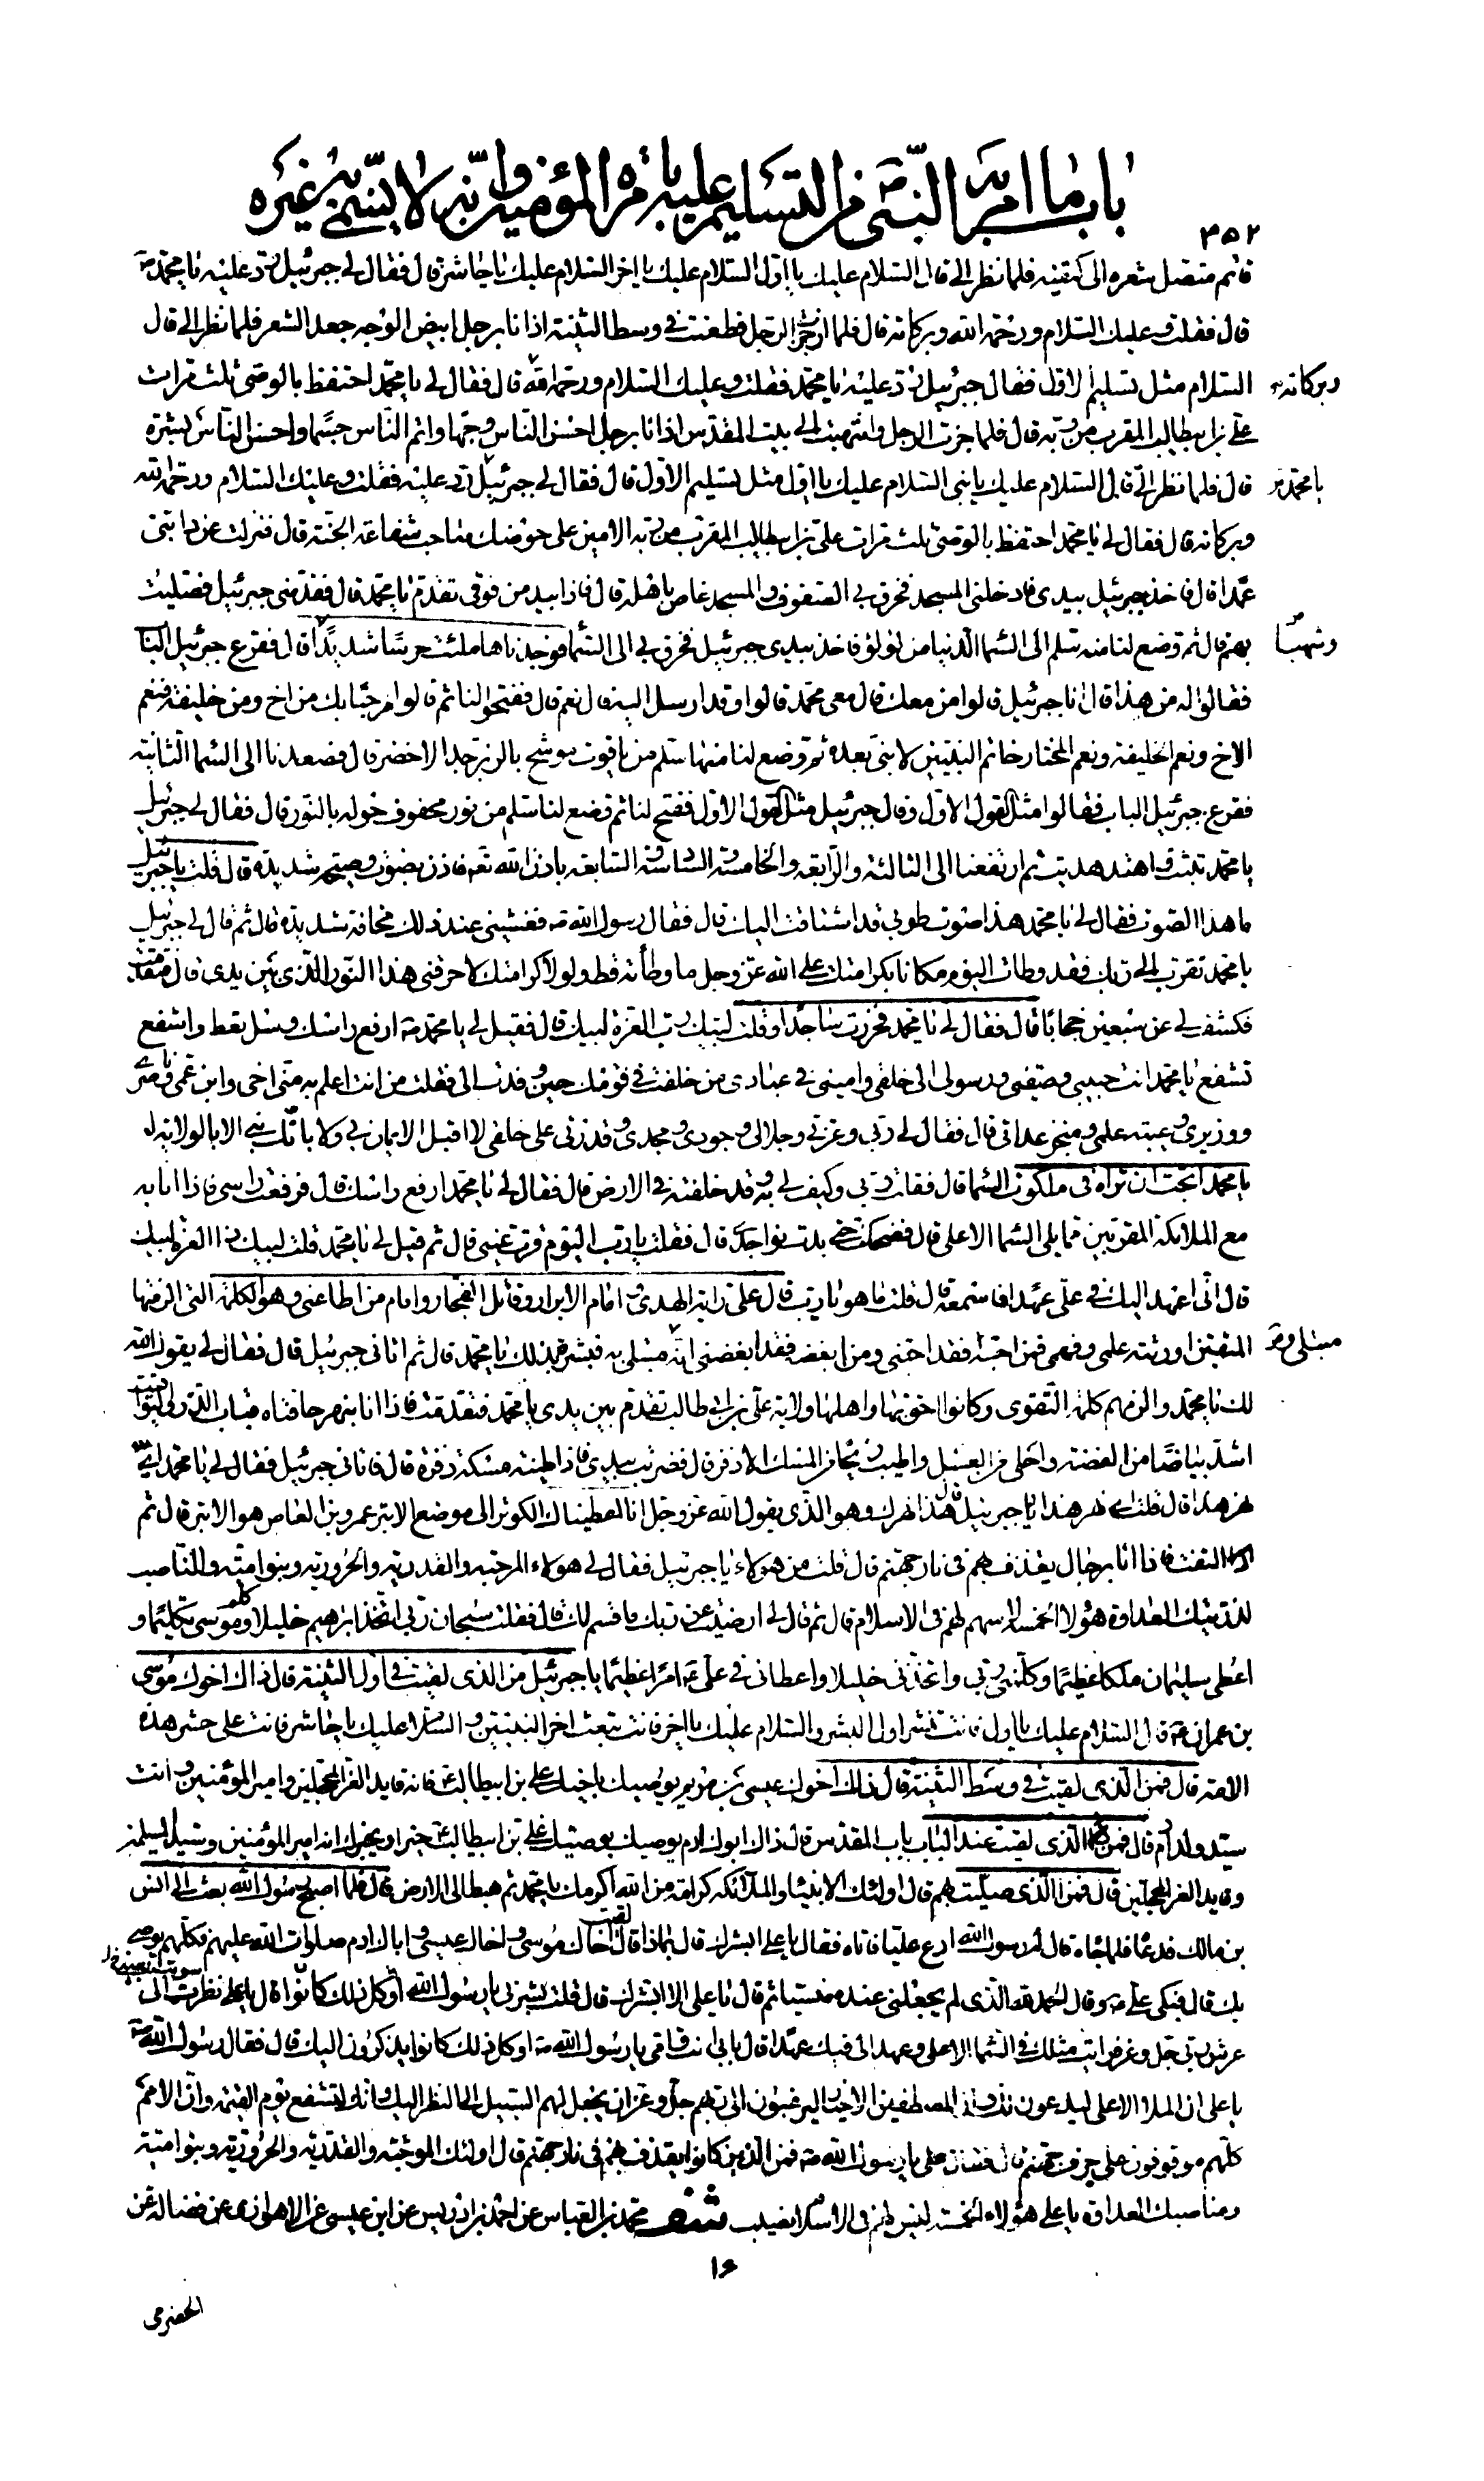 باب ما امر به النبى ص من التسليم عليه بامرة المؤمنين وانه لا يسمى به غيره
٣٥٢
قائم متصل شعره الى كتفيه فلما نظر الى قال السلام عليك يا اول السلام عليك يا اخر السلام عليك يا حاشر قال فقال لى جبرئيل رد عليه يا محمد ص
قال فقلت وعليك السلام ورحمة الله وبركاته قال فلما ان جزت الرجل فطعنت فى وسط الثنية اذا انا برجل ابيض الوجه جعد الشعر فلما نظر الى قال
السلام مثل تسليم الاول فقال جبرئيل رد عليه يا محمد فقلت وعليك السلام ورحمة الله قال فقال لى يا محمد احتفظ بالوصى ثلث مرات
وبركاته
على بن ابيطالب المقرب من ربه قال فلما جزت الرجل وانتهيت الى بيت المقدس اذا انا برجل احسن الناس وجها واتم الناس جسما واحسن الناس بشرة
قال فلما نظر الى قال السلام عليك يا نبى السلام عليك يا اول مثل تسليم الاول قال فقال لى جبرئيل رد عليه فقلت وعليك السلام ورحمة الله
يا محمد
وبركاته قال فقال لى يا محمد احتفظ بالوصى ثلث مرات على بن ابيطالب المقرب من ربه الامين على حوضك صاحب شفاعة الجنة قال فنزلت عن دابتى
عمدا قال فاخذ جبرئيل بيدى فادخلنى المسجد فخرق بى الصفوف والمسجد غاص باهله قال فاذا بيد من فوقى تقدم يا محمد قال فقدمنى جبرئيل فصليت
بهم قال ثم وضع لنا منه سلم الى السماء الدنيا من لؤلؤ فاخذ بيدى جبرئيل فخرق بى الى السماء فوجدناها ملئت حرسا شديدا قال فقرع جبرئيل الباب
وشهبا
فقالوا له من هذا قال انا جبرئيل قالوا من معك قال معى محمد قالوا وقد ارسل اليه قال نعم قال ففتحوا لنا ثم قالوا مرحبا بك من اخ ومن خليفة فنعم
الاخ ونعم الخليفة ونعم المختار خاتم النبيين لا نبى بعده ثم وضع لنا منها سلم من ياقوت موشح بالزبرجد الاخضر قال فصعدنا الى السماء الثانية
فقرع جبرئيل الباب فقالوا مثل القول الاول وقال جبرئيل مثل القول الاول ففتح لنا ثم وضع لنا سلم من نور محفوف حوله بالنور قال فقال لى جبرئيل
يا محمد تثبت واهتد هديت ثم ارتفعنا الى الثالثة والرابعة والخامسة والسادسة والسابعة باذن الله تع فاذن بصوت وصيحة شديدة قال قلت يا جبرئيل
ما هذا الصوت فقال لى يا محمد هذا صوت طوبى قد اشتاقت اليك قال فقال رسول الله ص فغشينى عند ذلك مخافة شديدة قال ثم قال لى جبرئيل
يا محمد تقرب الى ربك فقد وطات اليوم مكانا بكرامتك على الله عز وجل ما وطأته قط ولولا كرامتك لاحرقنى هذا النور الذى بين يدى قال فتقدمت
فكشف لى عن سبعين حجابا قال فقال لى يا محمد فخررت ساجدا وقلت لبيك رب العزة لبيك قال فقيل لى يا محمد ص ارفع راسك وسل تعط واشفع
تشفع يا محمد انت حبيبى وصفيى ورسولى الى خلقى وامينى فى عبادى من خلفت فى قومك حين وفدت الى فقلت من انت اعلم به منى اخى وابن عمى وناصرى
ووزيرى وعيبة علمى ومنجز عداتى قال فقال لى ربى وعزتى وجلالى وجودى ومجدى وقدرتى على خلقى لا اقبل الايمان بى ولا بانك نبى الا بالولاية له
يا محمد اتحب ان تراه فى ملكوت السماء قال فقلت ربى وكيف لى به وقد خلفته فى الارض قال فقال لى يا محمد ارفع راسك قال فرفعت راسى فاذا انا به
مع الملائكة المقربين مما يلى السماء الاعلى قال فضحكت حتى بدت نواجدى قال فقلت يا رب اليوم قرت عينى قال ثم قيل لى يا محمد قلت لبيك ذا العزة لبيك
قال انى اعهد اليك فى على عهدا فاسمعه قال قلت ما هو يا رب قال على راية الهدى وامام الابرار وقاتل الفجار وامام من اطاعنى وهو الكلمة التى الزمتها
المتقين اورثته علمى وفهمى فمن احبه فقد احبنى ومن ابغضه فقد ابغضنى انه مبتلى به فبشره بذلك يا محمد قال ثم اتانى جبرئيل قال فقال لى يقول الله
مبتلى و
لك يا محمد والزمهم كلمة التقوى وكانوا احق بها واهلها ولاية على بن ابى طالب تقدم بين يدى يا محمد فتقدمت فاذا انا بنهر حافتاه قباب الدر واليواقيت
اشد بياضا من الفضة واحلى من العسل واطيب ريحا من المسك الاذفر قال فضربت بيدى فاذا طينه مسكة ذفرة قال فاتانى جبرئيل فقال لى يا محمد اى
نهر هذا قال قلت اى نهر هذا يا جبرئيل قال هذا نهرك وهو الذى يقول الله عز وجل انا اعطيناك الكوثر الى موضع الابتر عمرو بن العاص هو الابتر قال ثم
التفت فاذا انا برجال يقذف بهم فى نار جهنم قال قلت من هؤلاء يا جبرئيل فقال لى هؤلاء المرجئة والقدرية والحرورية وبنو امية والناصب
لذريتك العداوة هؤلاء الخمسة لا سهم لهم فى الاسلام قال ثم قال لى ارضيت عن ربك ما قسم لك قال فقلت سبحان ربى اتخذ ابرهيم خليلا وكلم موسى تكليما و
اعطى سليمان ملكا عظيما وكلمنى ربى واتخذنى خليلا واعطانى فى على ع امرا عظيما يا جبرئيل من الذى لقيت فى اول الثنية قال ذاك اخوك موسى
بن عمران ع قال السلام عليك يا اول فانت تنشر اول البشر والسلام عليك يا اخر فانت تبعث اخر النبيين والسلام عليك يا حاشر فانت على حشر هذه
الامة قال فمن الذى لقيت فى وسط الثنية قال ذلك اخوك عيسى بن مريم يوصيك باخيك على بن ابيطالب ع فانه قايد الغر المحجلين وامير المؤمنين وانت
سيد ولد آدم قال فمن الذى لقيت عند الباب باب المقدس قال ذاك ابوك ادم يوصيك بوصيك على بن ابيطالب ع خيرا ويخبرك انه امير المؤمنين وسيد المسلمين
وقايد الغر المحجلين قال فمن الذى صليت بهم قال اولئك الانبياء والملائكة كرامة من الله اكرمك يا محمد ثم هبط الى الارض قال فلما اصبح رسول الله بعث الى انس
بن مالك فدعاه فلما جاءه قال له رسول الله ادع عليا فاتاه فقال يا على ابشرك قال بماذا قال لقيت اخاك موسى واخاك عيسى واباك ادم صلوات الله عليهم فكلهم يوصى
بك قال فبكى على ع وقال الحمد لله الذى لم يجعلنى عنده منسيا ثم قال يا على الا ابشرك قال قلت بشرنى يا رسول الله قال يا على نظرت الى
عرش ربى جل وعز فرايت مثلك فى السماء الاعلى وعهد الى فيك عهدا قال بابى انت وامى يا رسول الله ص او كل ذلك كانوا يذكرون اليك قال فقال رسول الله ص
يا على ان الملا الاعلى ليدعون لك وان المصطفين الاخيار ليرغبون الى ربهم جل وعز ان يجعل لهم السبيل الى النظر اليك وانك لتشفع يوم القيمة وان الامم
كلهم موقوفون على جرف جهنم قال فقال على يا رسول الله ص فمن الذين كانوا يقذف بهم فى نار جهنم قال اولئك المرجئة والقدرية والحرورية وبنو امية
ومناصبك العداوة يا على هؤلاء الخمسة ليس لهم فى الاسلام نصيب محمد بن العباس عن احمد بن ادريس عن ابن عيسى عن الاهوازى عن فضالة عن
١٦
الحضرمى